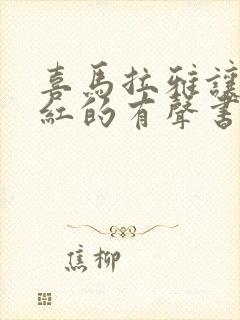 喜馬拉雅讓
紅的有聲書
焦柳